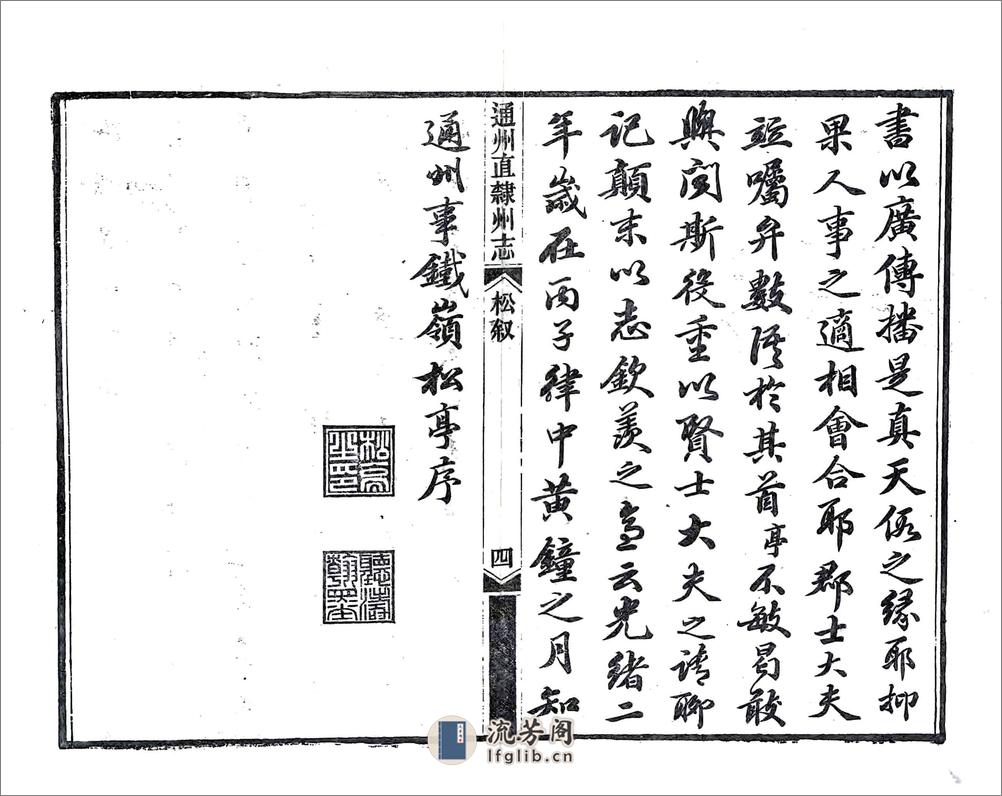 書以廣傳播是真天假之緣耶抑
果人事之適相會合耶郡士大夫
並囑弁數語於其首亭不敏曷敢
與聞斯役重以賢士大夫之請聊
記顛末以志欽羨之意云光緒二
年歲在丙子律中黃鐘之月知
通州直隸州志
松叙
四
通州事鐵嶺松亭序
松亭之印
聽濤翰墨
流芳阁
lfglib.cn